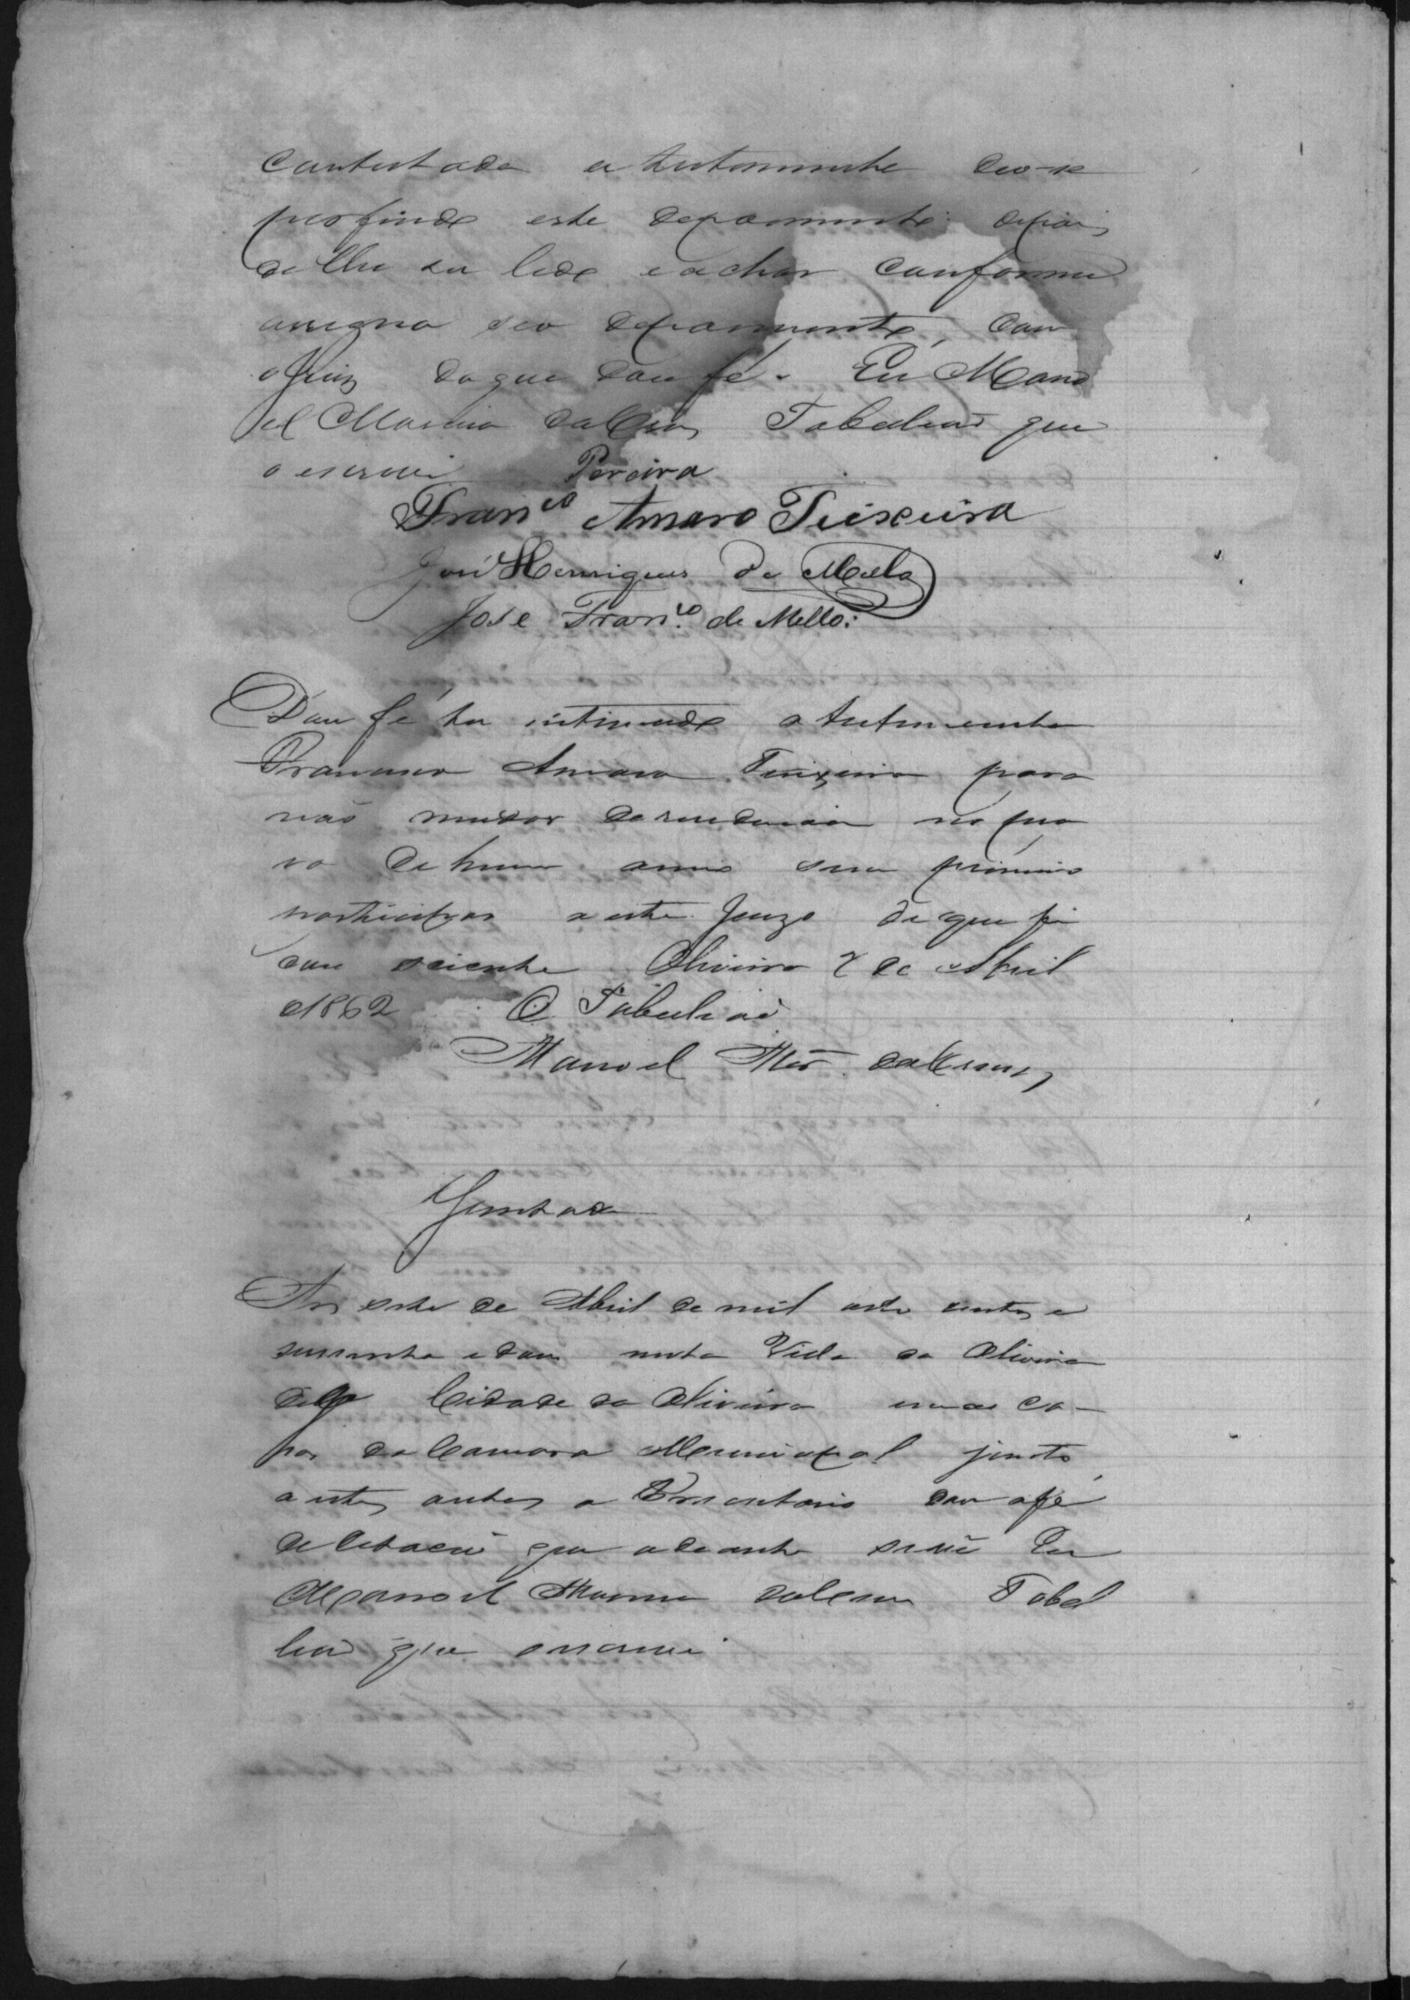 contestada a testemunha deo-se
por findo este depoimento depois
de lhe ser lido e achar conforme
assigna seo depoimento, com
o Juiz do que dou fé. Eu Mano
el Tabeliaõ que
o escrevi Pereira
Fran.co Amaro Teixeira
José Henriques de Mello
Jose Fran.co de Mello.
Dou fé ter intimado a testemunha
Francisco Amaro Teixeira para
não mudar de residencia no pra
so de hum anno sem primeiro
participar a este Juizo de que fi
cou sciente Oliveira 7 de Abril
de 1862 O Tabeliaõ
Manoel
Juntada
Aos sete de Abril de mil oito centos e
sessenta e dous nesta Villa da Oliveira
digo Cidade da Oliveira em as ca-
sas da Camara Municipal junto
a estes autos a Precatoria com a fé
de Citação que adeante se vê Eu
Manoel Tabel
liaõ que escrevi